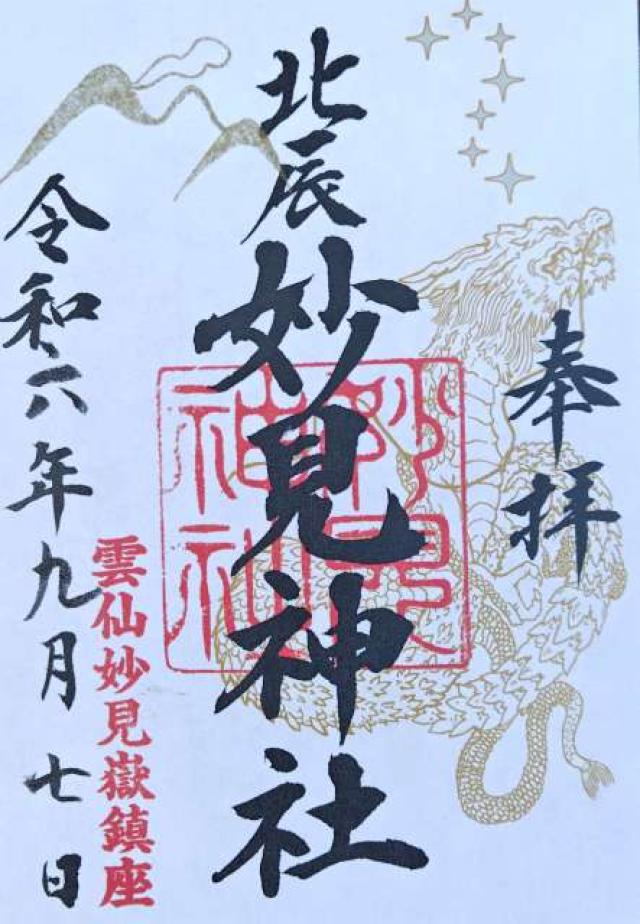 奉拝
北辰
妙見神社
妙見
神社
雲仙妙見嶽鎮座
令和六年九月七日